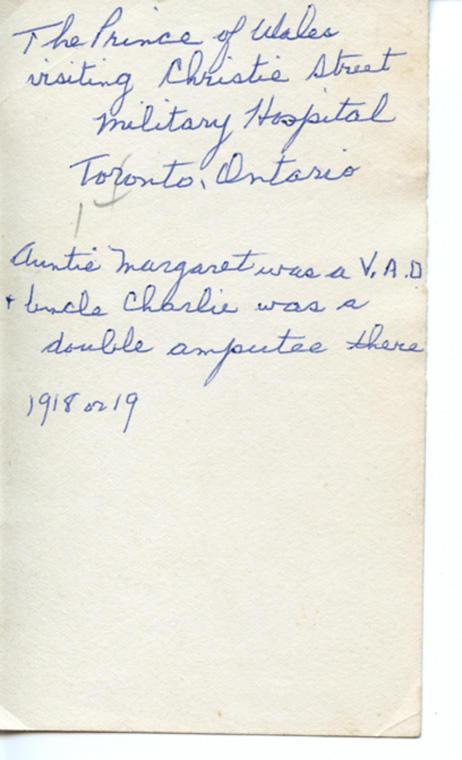 The Prince of Wales
visiting Christie Street
Military Hospital
Toronto, Ontario
Auntie Margaret was a V.A.D
+ Uncle Charlie was a
double amputee there
1918 or 19